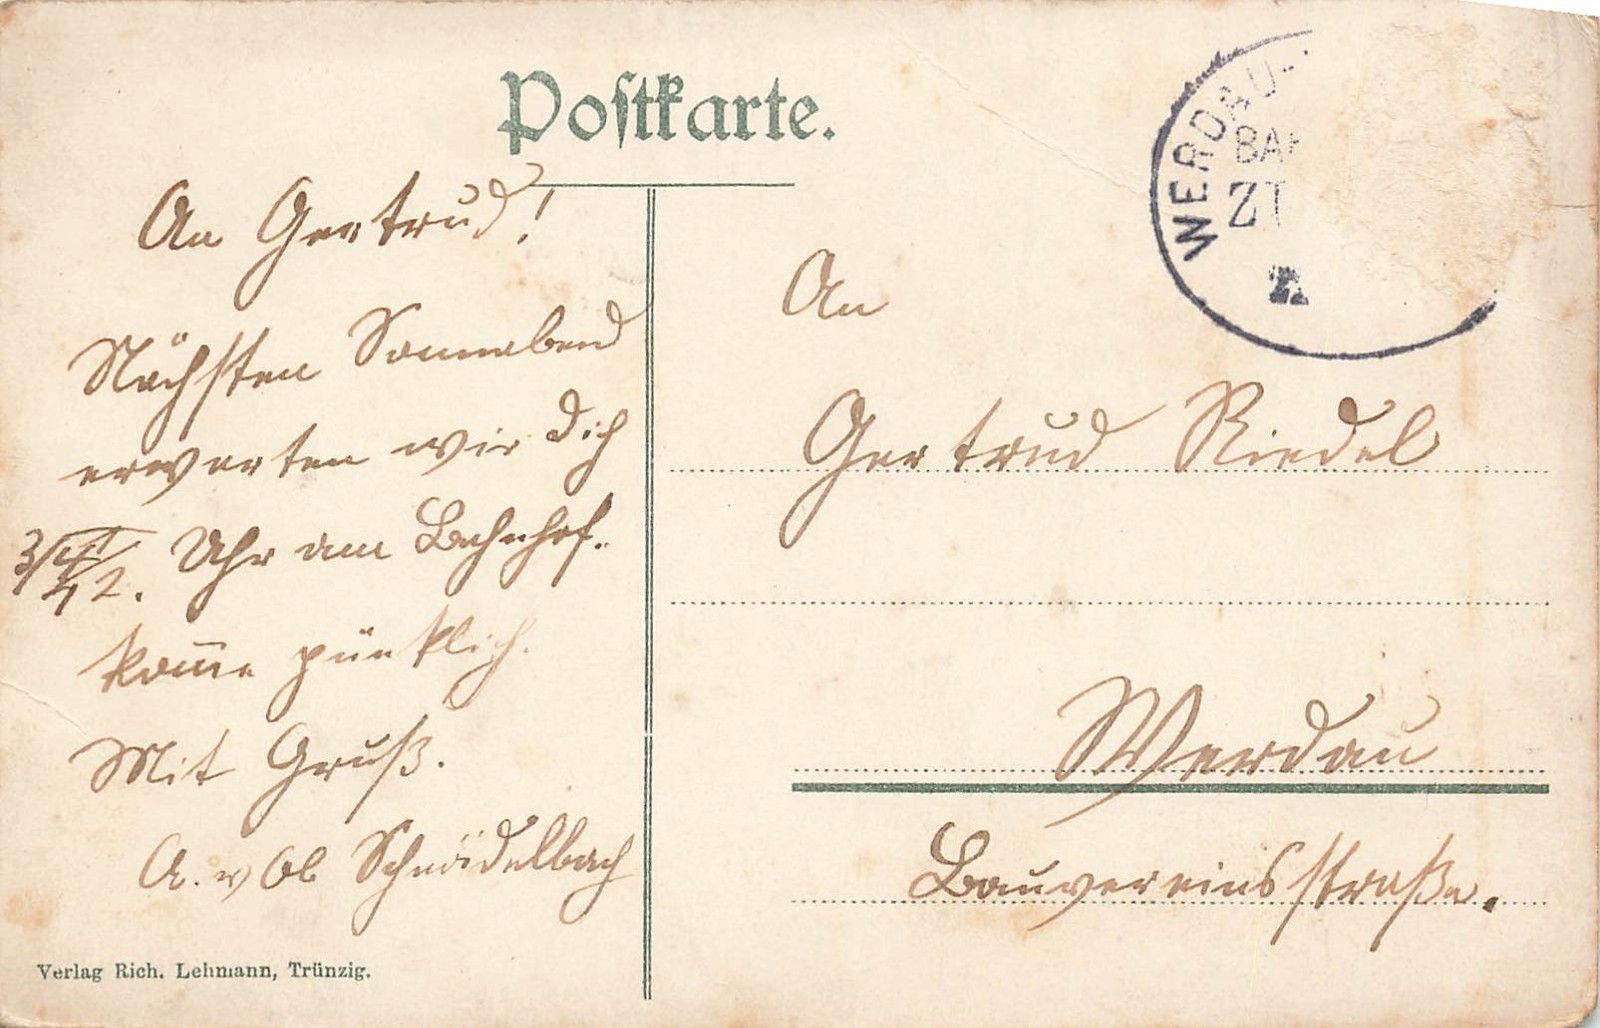 Postkarte.
An Gertrud!
Nächsten Sonnabend
erwarten wir Dich
Uhr am Bahnhof.
komme pünktlich.
Mit Gruß.
A. Schnödelbach
Verlag Rich. Lehmann, Trünzig.
WERDAU-
BAH
ZT
An
Gertrud Riedel
Werdau
Bauvereinsstraße.